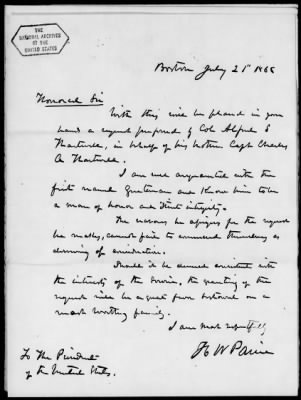 THE
NATIONAL ARCHIVES
OF THE
UNITED STATES
Boston July 21st 1865
Honored Sir
With this will be placed in your
hand a request prepared by Col Alfred S
Hartwell, in behalf of his brother Capt Charles
A Hartwell.
I am well acquainted with the
first named Gentleman and know him to be
a man of honor and strict integrity.
The reasons he assigns for the request
he makes, cannot fail to commend themselves as
deserving of consideration.
Should it be deemed consistent with
the interests of the service, the granting of the
request will be a great favor bestowed on a
most worthy family.
I am most respectfully
H W Paine
To The President
of the United States.